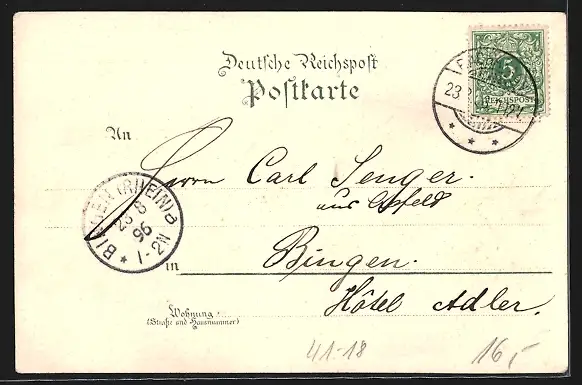 Deutsche Reichspost
Postkarte
5
REICHSPOST
23
An
Herrn Carl Senger.
aus Alsfeld
BINGEN (RHEIN) a
23 8
96
1-2N
in Bingen.
Hôtel Adler.
Wohnung
(Straße und Hausnummer)
41-18
16,-